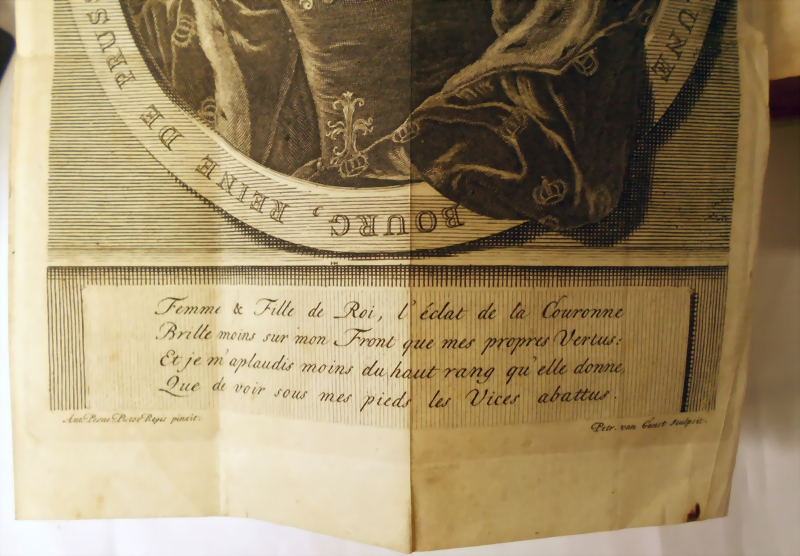 UNE
BOURG, REINE DE PRUSS
Femme & Fille de Roi, l'éclat de la Couronne
Brille moins sur mon Front que mes propres Vertus:
Et je m'aplaudis moins du haut rang qu'elle donne,
Que de voir sous mes pieds les Vices abattus.
Ant. Pesne Pictor Regis pinxit.
Petr. van Gunst sculpsit.